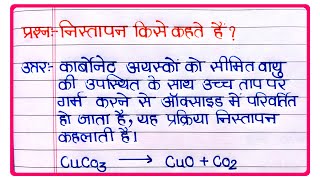 प्रश्न:- निस्तापन किसे कहते हैं ?
उत्तर:- कार्बोनेट अयस्कों को सीमित वायु
की उपस्थिति के साथ उच्च ताप पर
गर्म करने से ऑक्साइड में परिवर्तित
हो जाता है, यह प्रक्रिया निस्तापन
कहलाती है।
CuCO3 → CuO + CO2